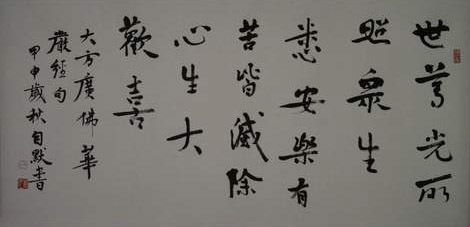 世尊光所
照眾生
悉安樂有
苦皆滅除
心生大
歡喜
大方廣佛華
嚴經句
甲申歲秋自默書